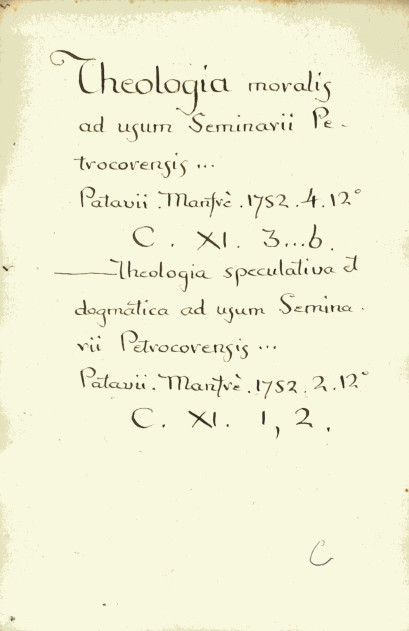 Theologia moralis
ad usum Seminarii Pe-
trocorensis...
Patavii. Manfrè. 1752. 4. 12°
C. XI. 3...6.
—Theologia speculativa et
dogmatica ad usum Semina-
rii Petrocorensis...
Patavii. Manfrè. 1752. 2. 12°
C. XI. 1, 2.
C